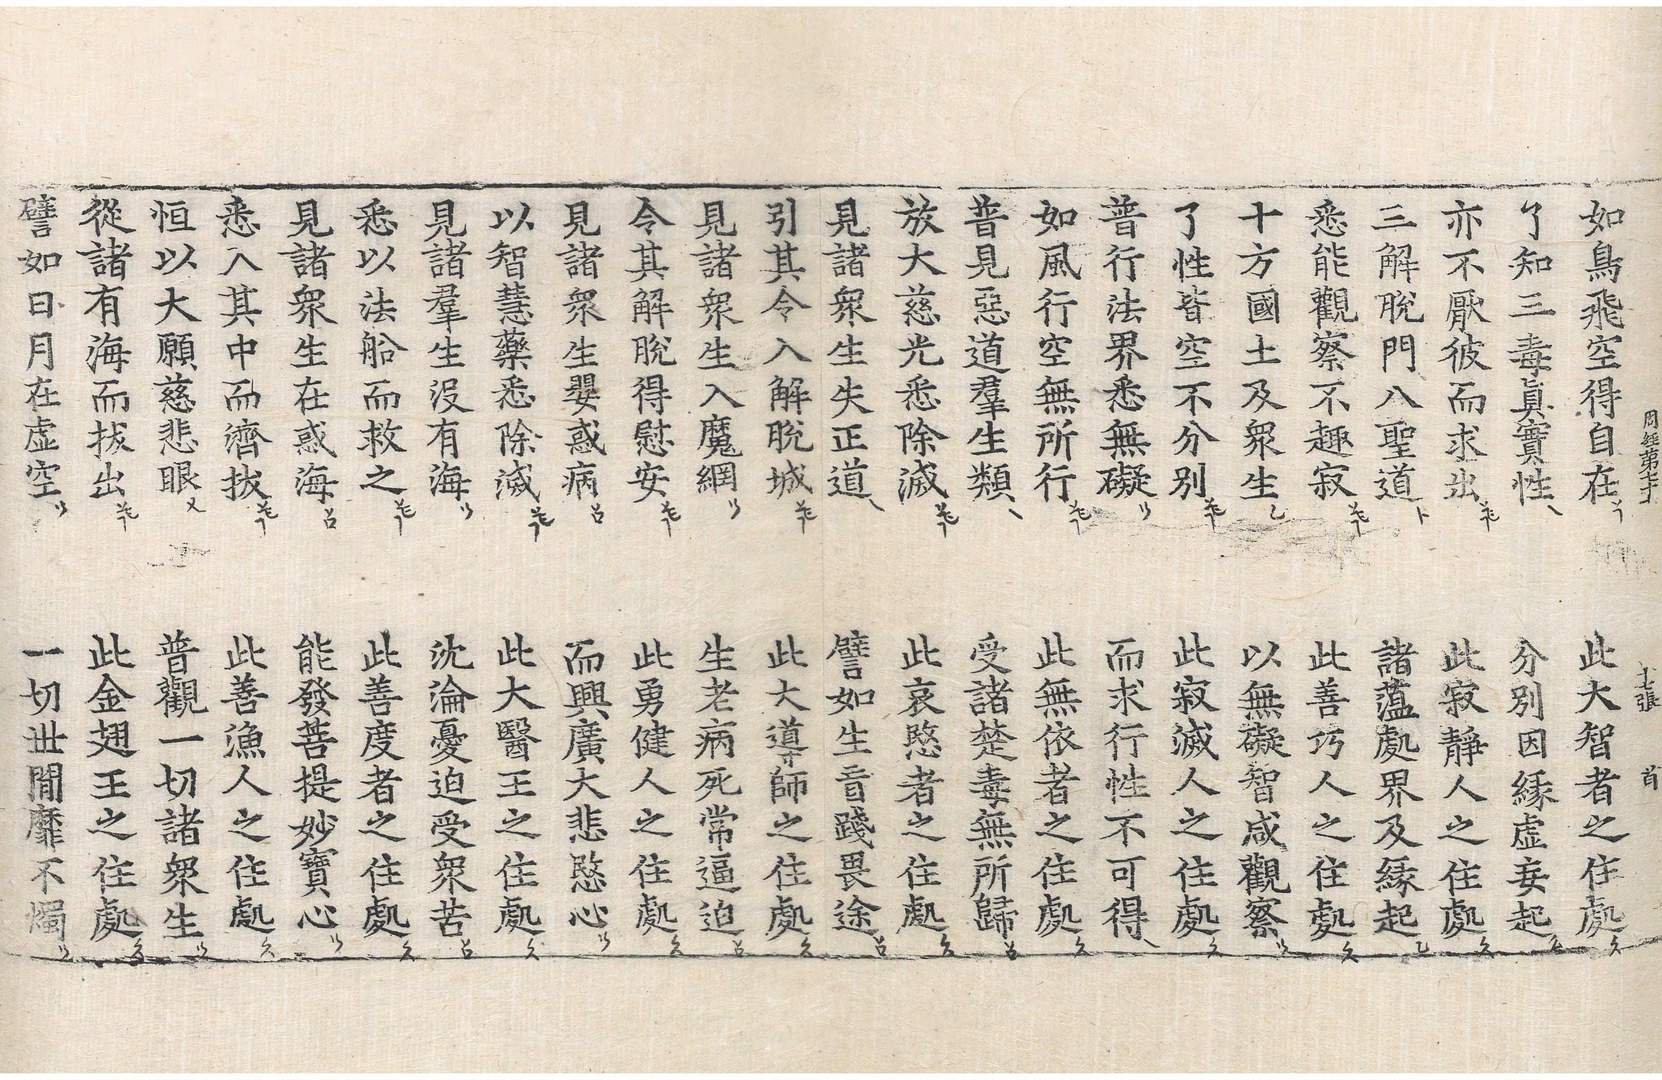 周經第七十 十七張 首
如鳥飛空得自在 此大智者之住處
了知三毒眞實性 分別因緣虛妄起
亦不厭彼而求出 此寂靜人之住處
三解脫門八聖道 諸蘊處界及緣起
悉能觀察不趣寂 此善巧人之住處
十方國土及衆生 以無礙智咸觀察
了性皆空不分別 此寂滅人之住處
普行法界悉無礙 而求行性不可得
如風行空無所行 此無依者之住處
普見惡道羣生類 受諸楚毒無所歸
放大慈光悉除滅 此哀愍者之住處
見諸衆生失正道 譬如生盲踐畏途
引其令入解脫城 此大導師之住處
見諸衆生入魔網 生老病死常逼迫
令其解脫得慰安 此勇健人之住處
見諸衆生嬰惑病 而興廣大悲愍心
以智慧藥悉除滅 此大醫王之住處
見諸羣生沒有海 沈淪憂迫受衆苦
悉以法船而救之 此善度者之住處
見諸衆生在惑海 能發菩提妙寶心
悉入其中而濟拔 此善漁人之住處
恒以大願慈悲眼 普觀一切諸衆生
從諸有海而拔出 此金翅王之住處
譬如日月在虛空 一切世閒靡不燭